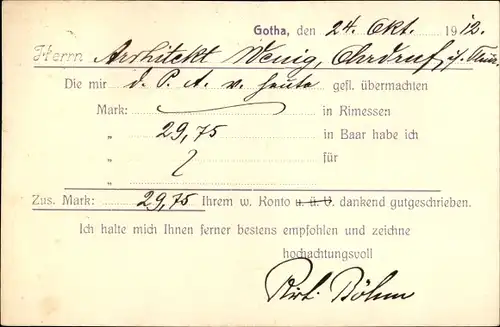 Gotha, den 24. Okt. 1912.
Herrn Architekt Wenig, Ohrdruf, i/
Die mir d. P. A. v. heute gefl. übermachten
Mark: in Rimessen
„ 29,75 in Baar habe ich
„ für
„
Zus. Mark: 29,75 Ihrem w. Konto u. ü. V. dankend gutgeschrieben.
Ich halte mich Ihnen ferner bestens empfohlen und zeichne
hochachtungsvoll
Böhm